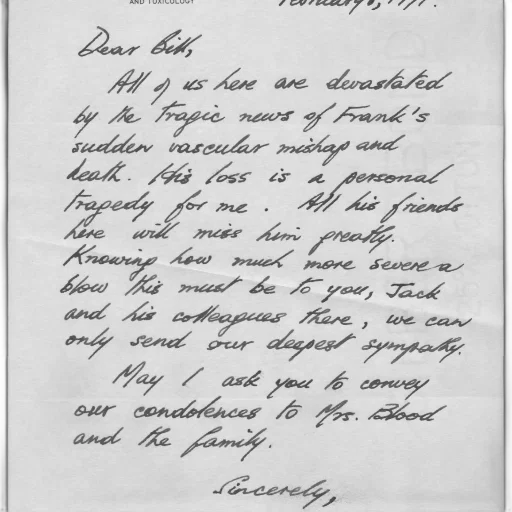 AND TOXICOLOGY
Dear Bill,
All of us here are devastated
by the tragic news of Frank's
sudden vascular mishap and
death. His loss is a personal
tragedy for me. All his friends
here will miss him greatly.
Knowing how much more severe a
blow this must be to you, Jack
and his colleagues there, we can
only send our deepest sympathy.
May I ask you to convey
our condolences to Mrs. Blood
and the family.
Sincerely,